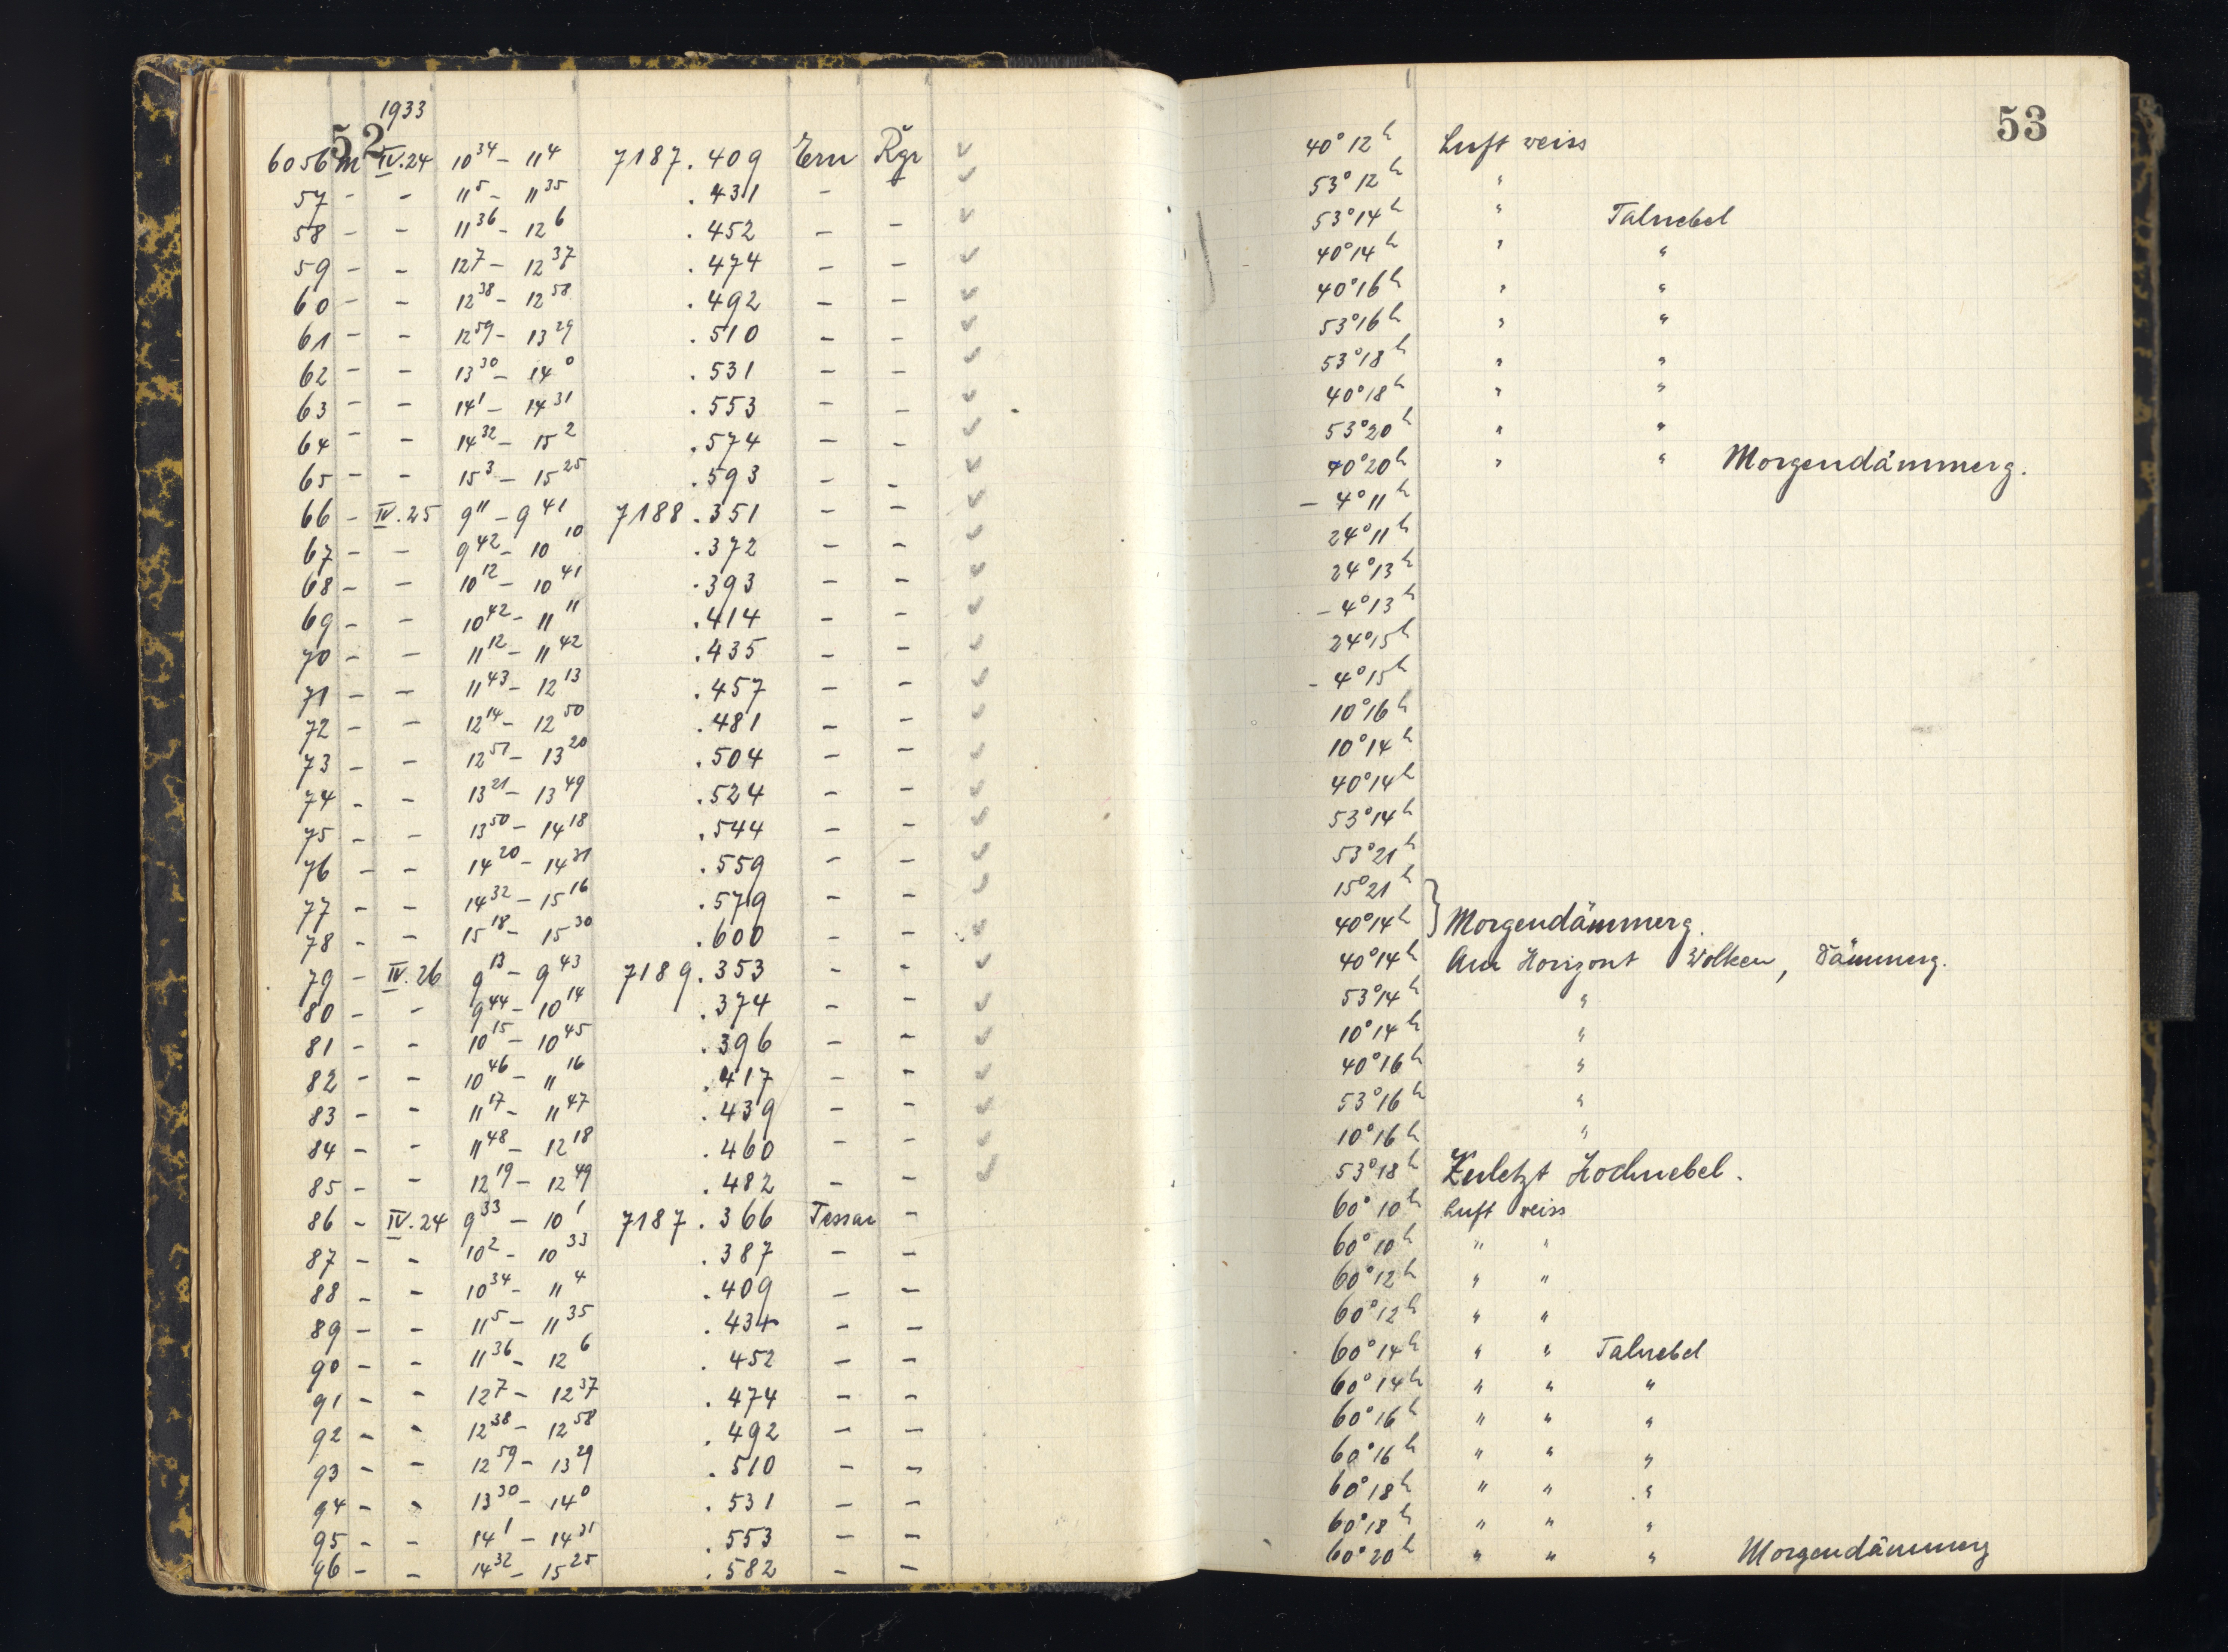 52
1933
6056 m IV.24 10 34 – 11 4 7187.409 Ern Rgr ✓
57 – – 11 5 – 11 35 .431 – ✓
58 – – 11 36 – 12 6 .452 – – ✓
59 – – 12 7 – 12 37 .474 – – ✓
60 – – 12 38 – 12 58 .492 – – ✓
61 – – 12 59 – 13 29 .510 – – ✓
62 – – 13 30 – 14 0 .531 – – ✓
63 – – 14 1 – 14 31 .553 – – ✓
64 – – 14 32 – 15 2 .574 – – ✓
65 – – 15 3 – 15 25 .593 – – ✓
66 – IV.25 9 11 – 9 41 7188.351 – – ✓
67 – – 9 42 – 10 10 .372 – – ✓
68 – – 10 12 – 10 41 .393 – – ✓
69 – – 10 42 – 11 11 .414 – – ✓
70 – – 11 12 – 11 42 .435 – – ✓
71 – – 11 43 – 12 13 .457 – – ✓
72 – – 12 14 – 12 50 .481 – – ✓
73 – – 12 51 – 13 20 .504 – – ✓
74 – – 13 21 – 13 49 .524 – – ✓
75 – – 13 50 – 14 18 .544 – – ✓
76 – – 14 20 – 14 31 .559 – – ✓
77 – – 14 32 – 15 16 .579 – – ✓
78 – – 15 18 – 15 30 .600 – – ✓
79 – IV.26 9 13 – 9 43 7189.353 – – ✓
80 – – 9 44 – 10 14 .374 – – ✓
81 – – 10 15 – 10 45 .396 – – ✓
82 – – 10 46 – 11 16 .417 – – ✓
83 – – 11 17 – 11 47 .439 – – ✓
84 – – 11 48 – 12 18 .460 – – ✓
85 – – 12 19 – 12 49 .482 – – ✓
86 – IV.24 9 33 – 10 1 7187.366 Tessar –
87 – – 10 2 – 10 33 .387 – –
88 – – 10 34 – 11 4 .409 – –
89 – – 11 5 – 11 35 .431 – –
90 – – 11 36 – 12 6 .452 – –
91 – – 12 7 – 12 37 .474 – –
92 – – 12 38 – 12 58 .492 – –
93 – – 12 59 – 13 29 .510 – –
94 – – 13 30 – 14 0 .531 – –
95 – – 14 1 – 14 31 .553 – –
96 – – 14 32 – 15 25 .582 – –
53
40° 12h Luft weiss
53° 12h "
53° 14h " Talnebel
40° 14h " "
40° 16h " "
53° 16h " "
53° 18h " "
40° 18h " "
53° 20h " "
40° 20h " " Morgendämmerg.
– 4° 11h
24° 11h
24° 13h
– 4° 13h
24° 15h
– 4° 15h
10° 16h
10° 14h
40° 14h
53° 14h
53° 21h
15° 21h
40° 14h } Morgendämmerg.
40° 14h Am Horizont Wolken, Dämmerg.
53° 14h "
10° 14h "
40° 16h "
53° 16h "
10° 16h "
53° 18h Zuletzt Hochnebel.
60° 10h Luft weiss
60° 10h " "
60° 12h " "
60° 12h " "
60° 14h " " Talnebel
60° 14h " " "
60° 16h " " "
60° 16h " " "
60° 18h " " "
60° 18h " " "
60° 20h " " " Morgendämmerg